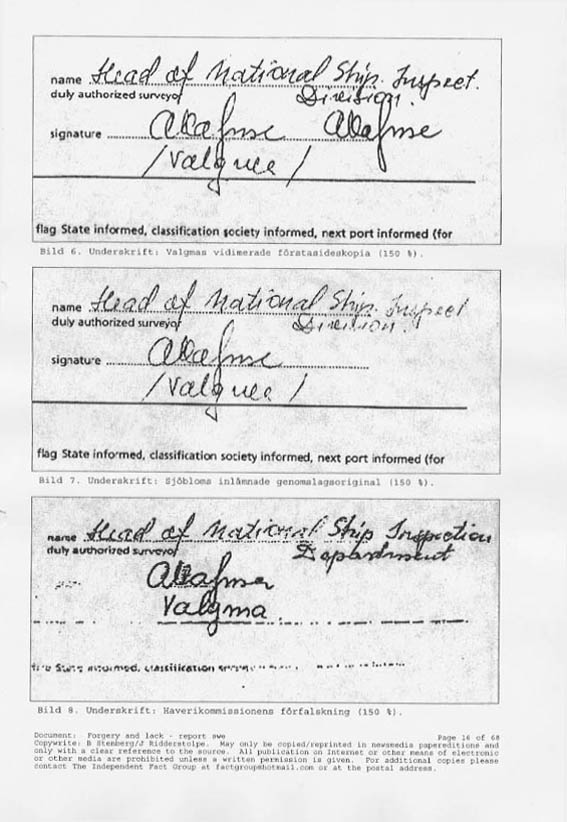 name Head of National Ship. Inspect.
duly authorized surveyor Division.
signature
/Valgma/
flag State informed, classification society informed, next port informed (for
Bild 6. Underskrift: Valgmas vidimerade förstasideskopia (150 %).
name Head of National Ship. Inspect
duly authorized surveyor Division.
signature
/Valgma/
flag State informed, classification society informed, next port informed (for
Bild 7. Underskrift: Sjöbloms inlämnade genomslagsoriginal (150 %).
name Head of National Ship Inspection
duly authorized surveyor Department
Valgma
State informed, classification
Bild 8. Underskrift: Haverikommissionens förfalskning (150 %).
Document: Forgery and lack - report swe Page 16 of 68
Copywrite: B Stenberg/J Ridderstolpe. May only be copied/reprinted in newsmedia papereditions and
only with a clear reference to the source. All publication on Internet or other means of electronic
or other media are prohibited unless a written permission is given. For additional copies please
contact The Independent Fact Group at factgroup@hotmail.com or at the postal address.